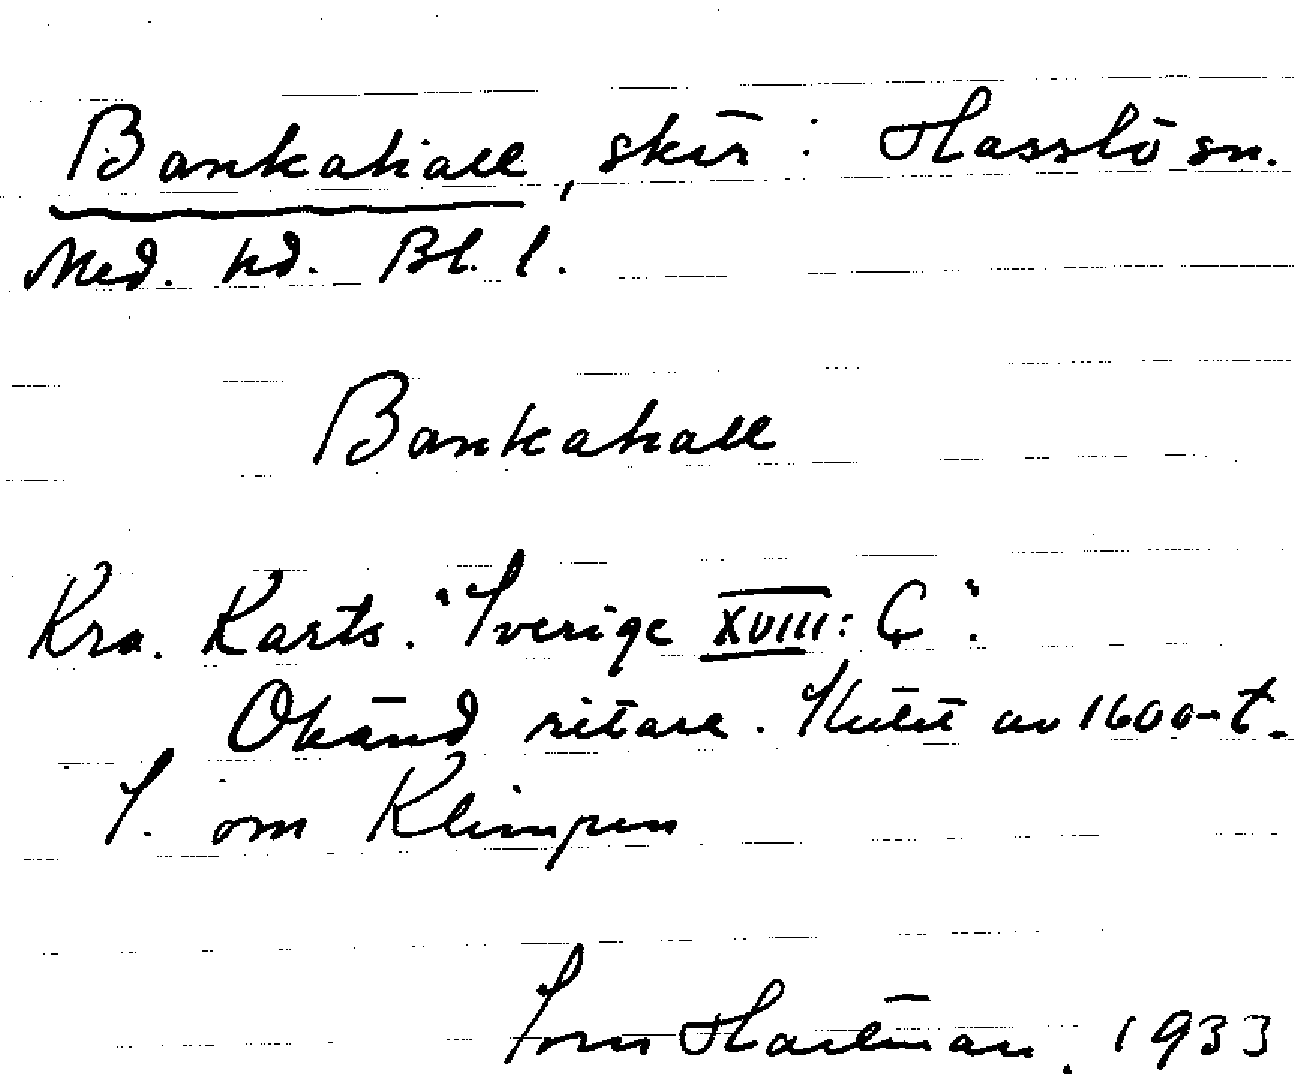 Bankahall, skär i Hasslö sn.
Med. hd. Bl. l.
Bankahall
Kra. Karts. "Sverige XVIII: C".
Okänd ritare. Slutet av 1600-t.
S. om Klimpen
Hartman. 1933